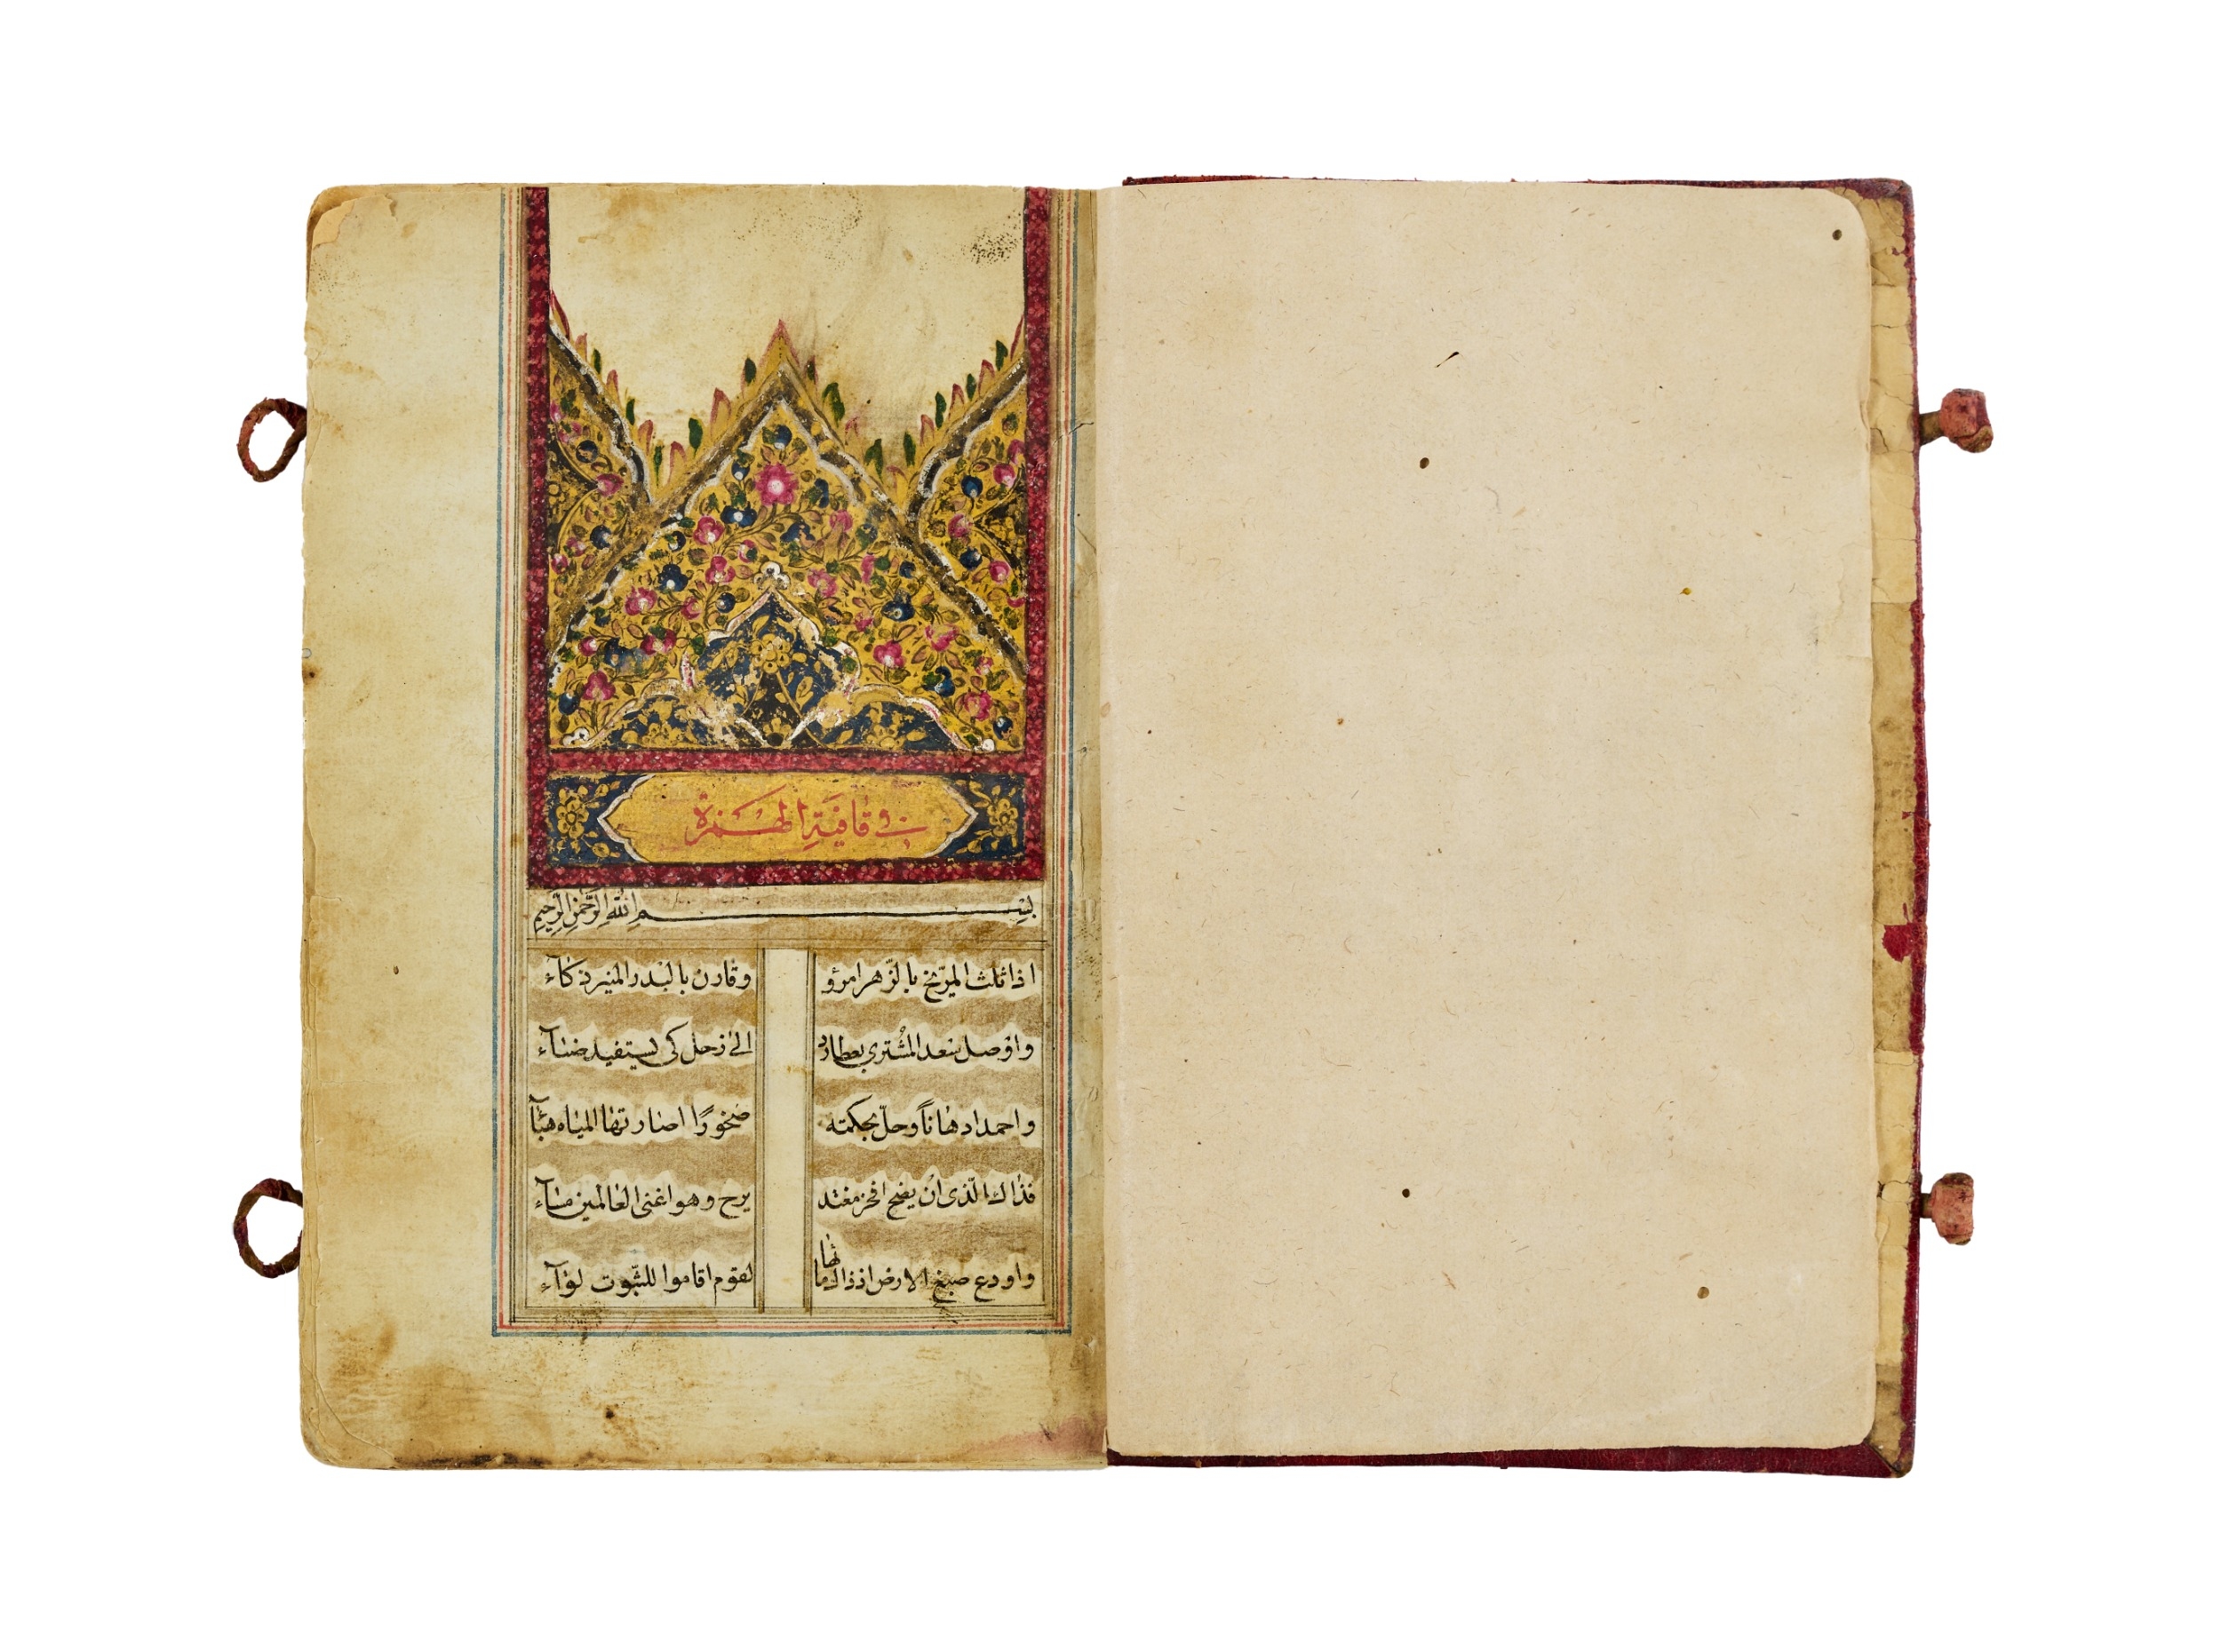 في قافية الهمزة
بسم الله الرحمن الرحيم
اذا ثلث المريخ بالزهر امرؤ وقارن بالبدر المنير ذكآء
واوصل سعد المشتري بعطارد الى زحل كى يستفيد ضيآء
واحمد ادهاناً وحلّ بحكمته صخورًا اصارتها المياه هبآء
فذاك الّذى ان يضح افخر مغتد يرح وهو اغنى العالمين مسآء
واودع صبغ الارض اذ ذاك مائها لقوم اقاموا للثّبوت لوآء